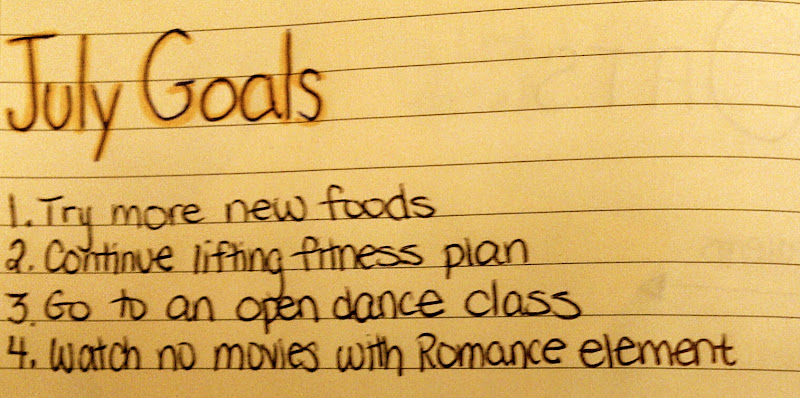 July Goals
1. Try more new foods
2. Continue lifting fitness plan
3. Go to an open dance class
4. Watch no movies with Romance element